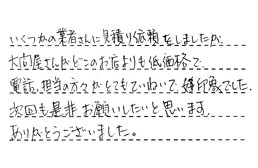 いくつかの業者さんに見積り依頼をしましたが
大問屋さんがどこのお店よりも低価格で
電話、担当の方々がとてもていねいで、好印象でした。
次回も是非お願いしたいと思います。
ありがとうございました。